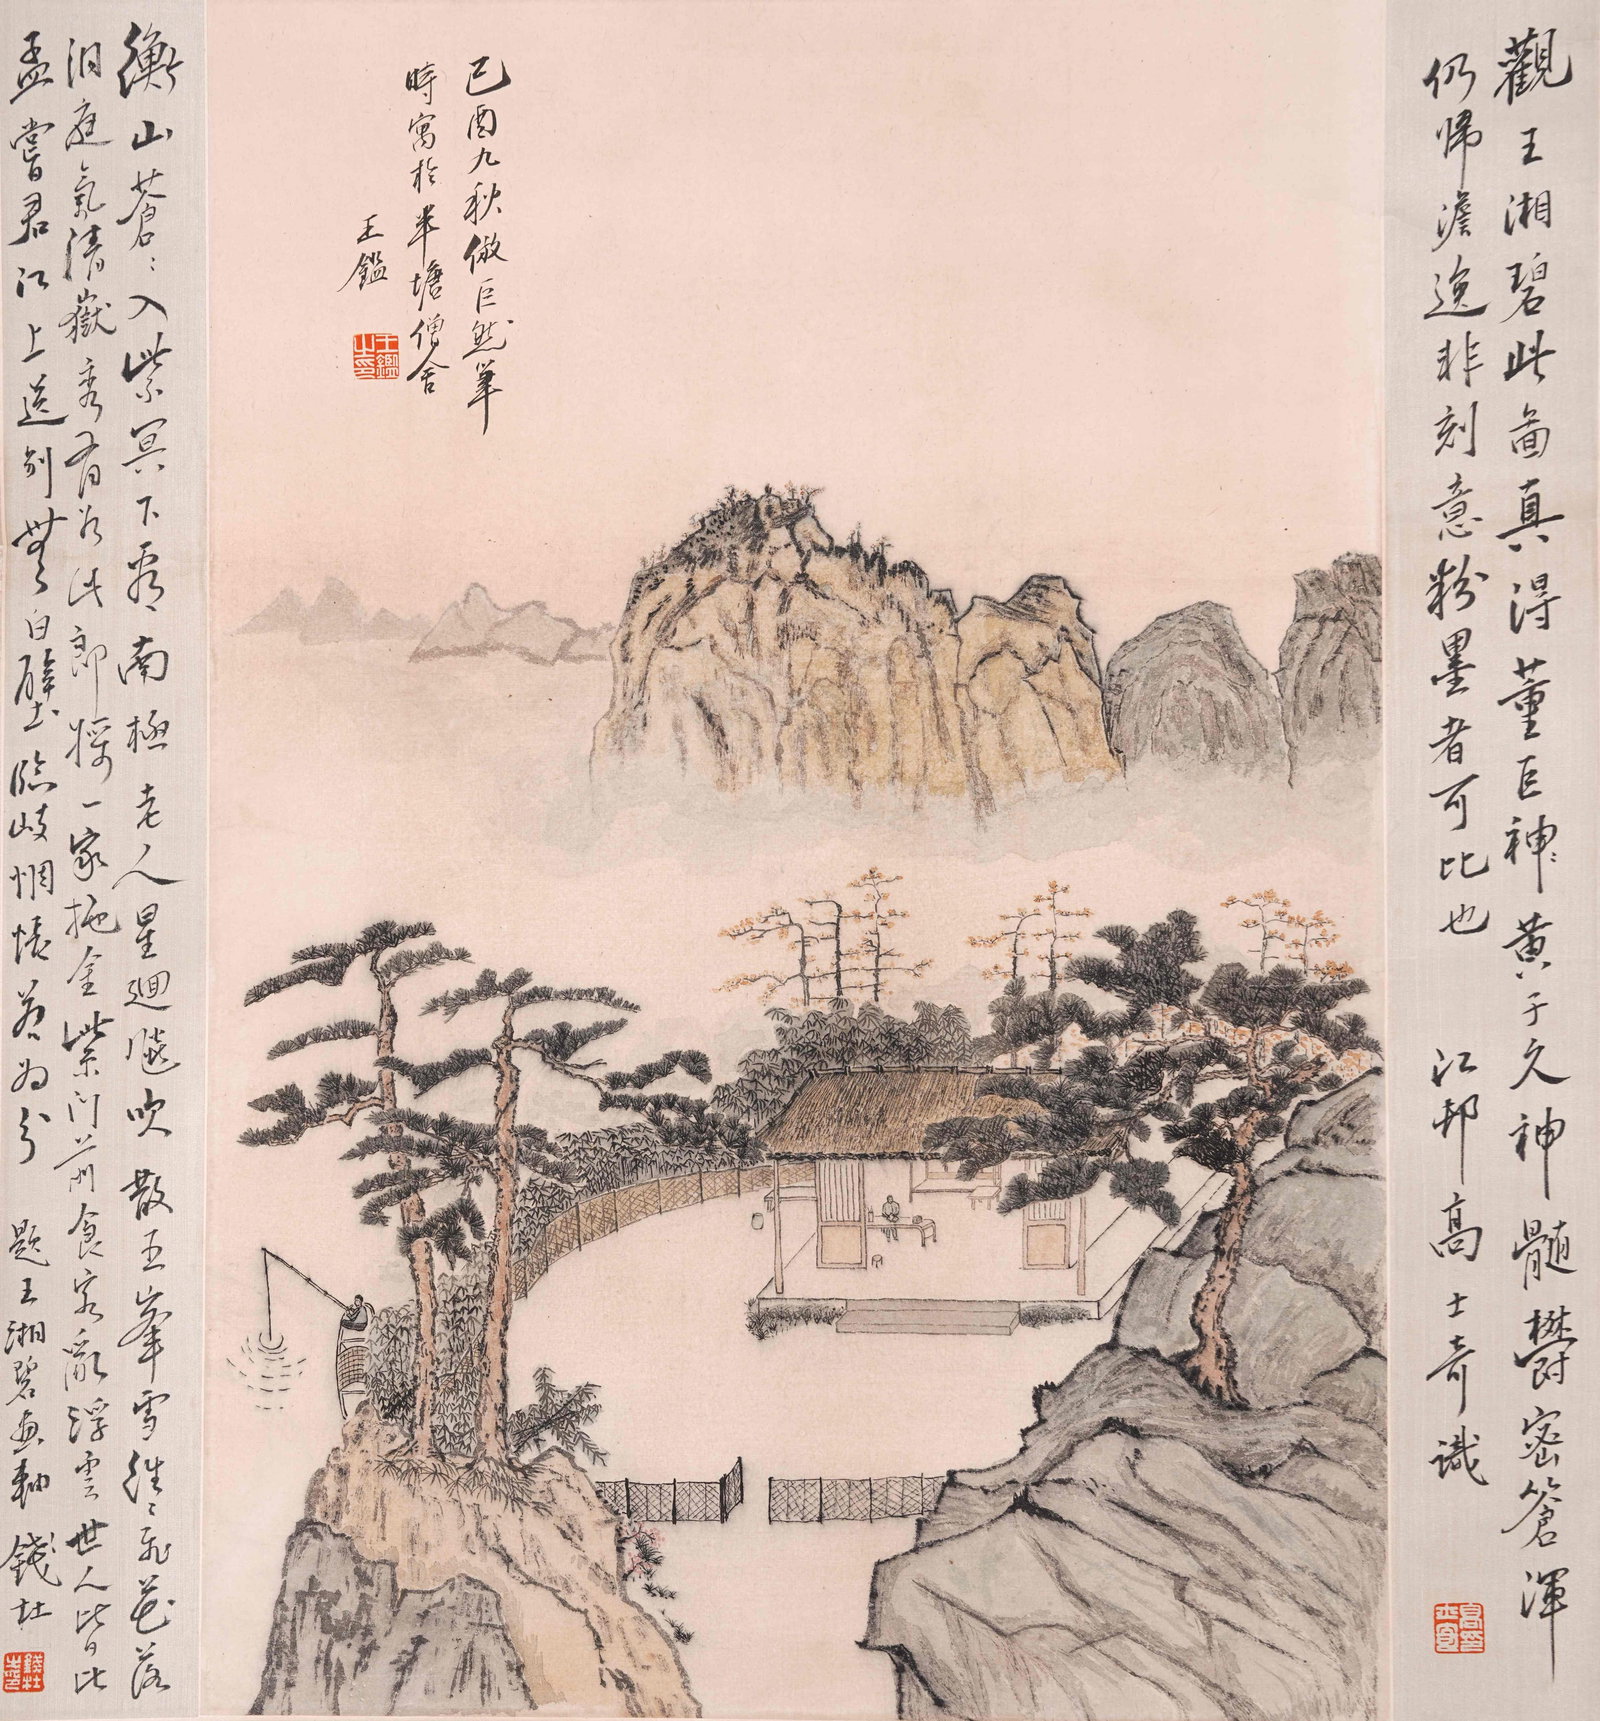 觀王湘碧此畵真得董巨神〻黃子久神髓鬱密蒼渾
仍歸澹逸非刻意粉墨者可比也 江邨高士奇識
高士奇
己酉九秋倣巨然筆
時寓於半塘僧舍
王鑑
王鑑之印
衡山蒼〻入紫冥下看南極老人星廻飈吹散五峯雪往〻飛花落
洞庭氣清嶽秀有如此郎將一家拖金紫門前食客亂浮雲世人皆比
孟嘗君江上送別無白璧臨岐惆悵若為分 題王湘碧画軸 錢杜
錢杜